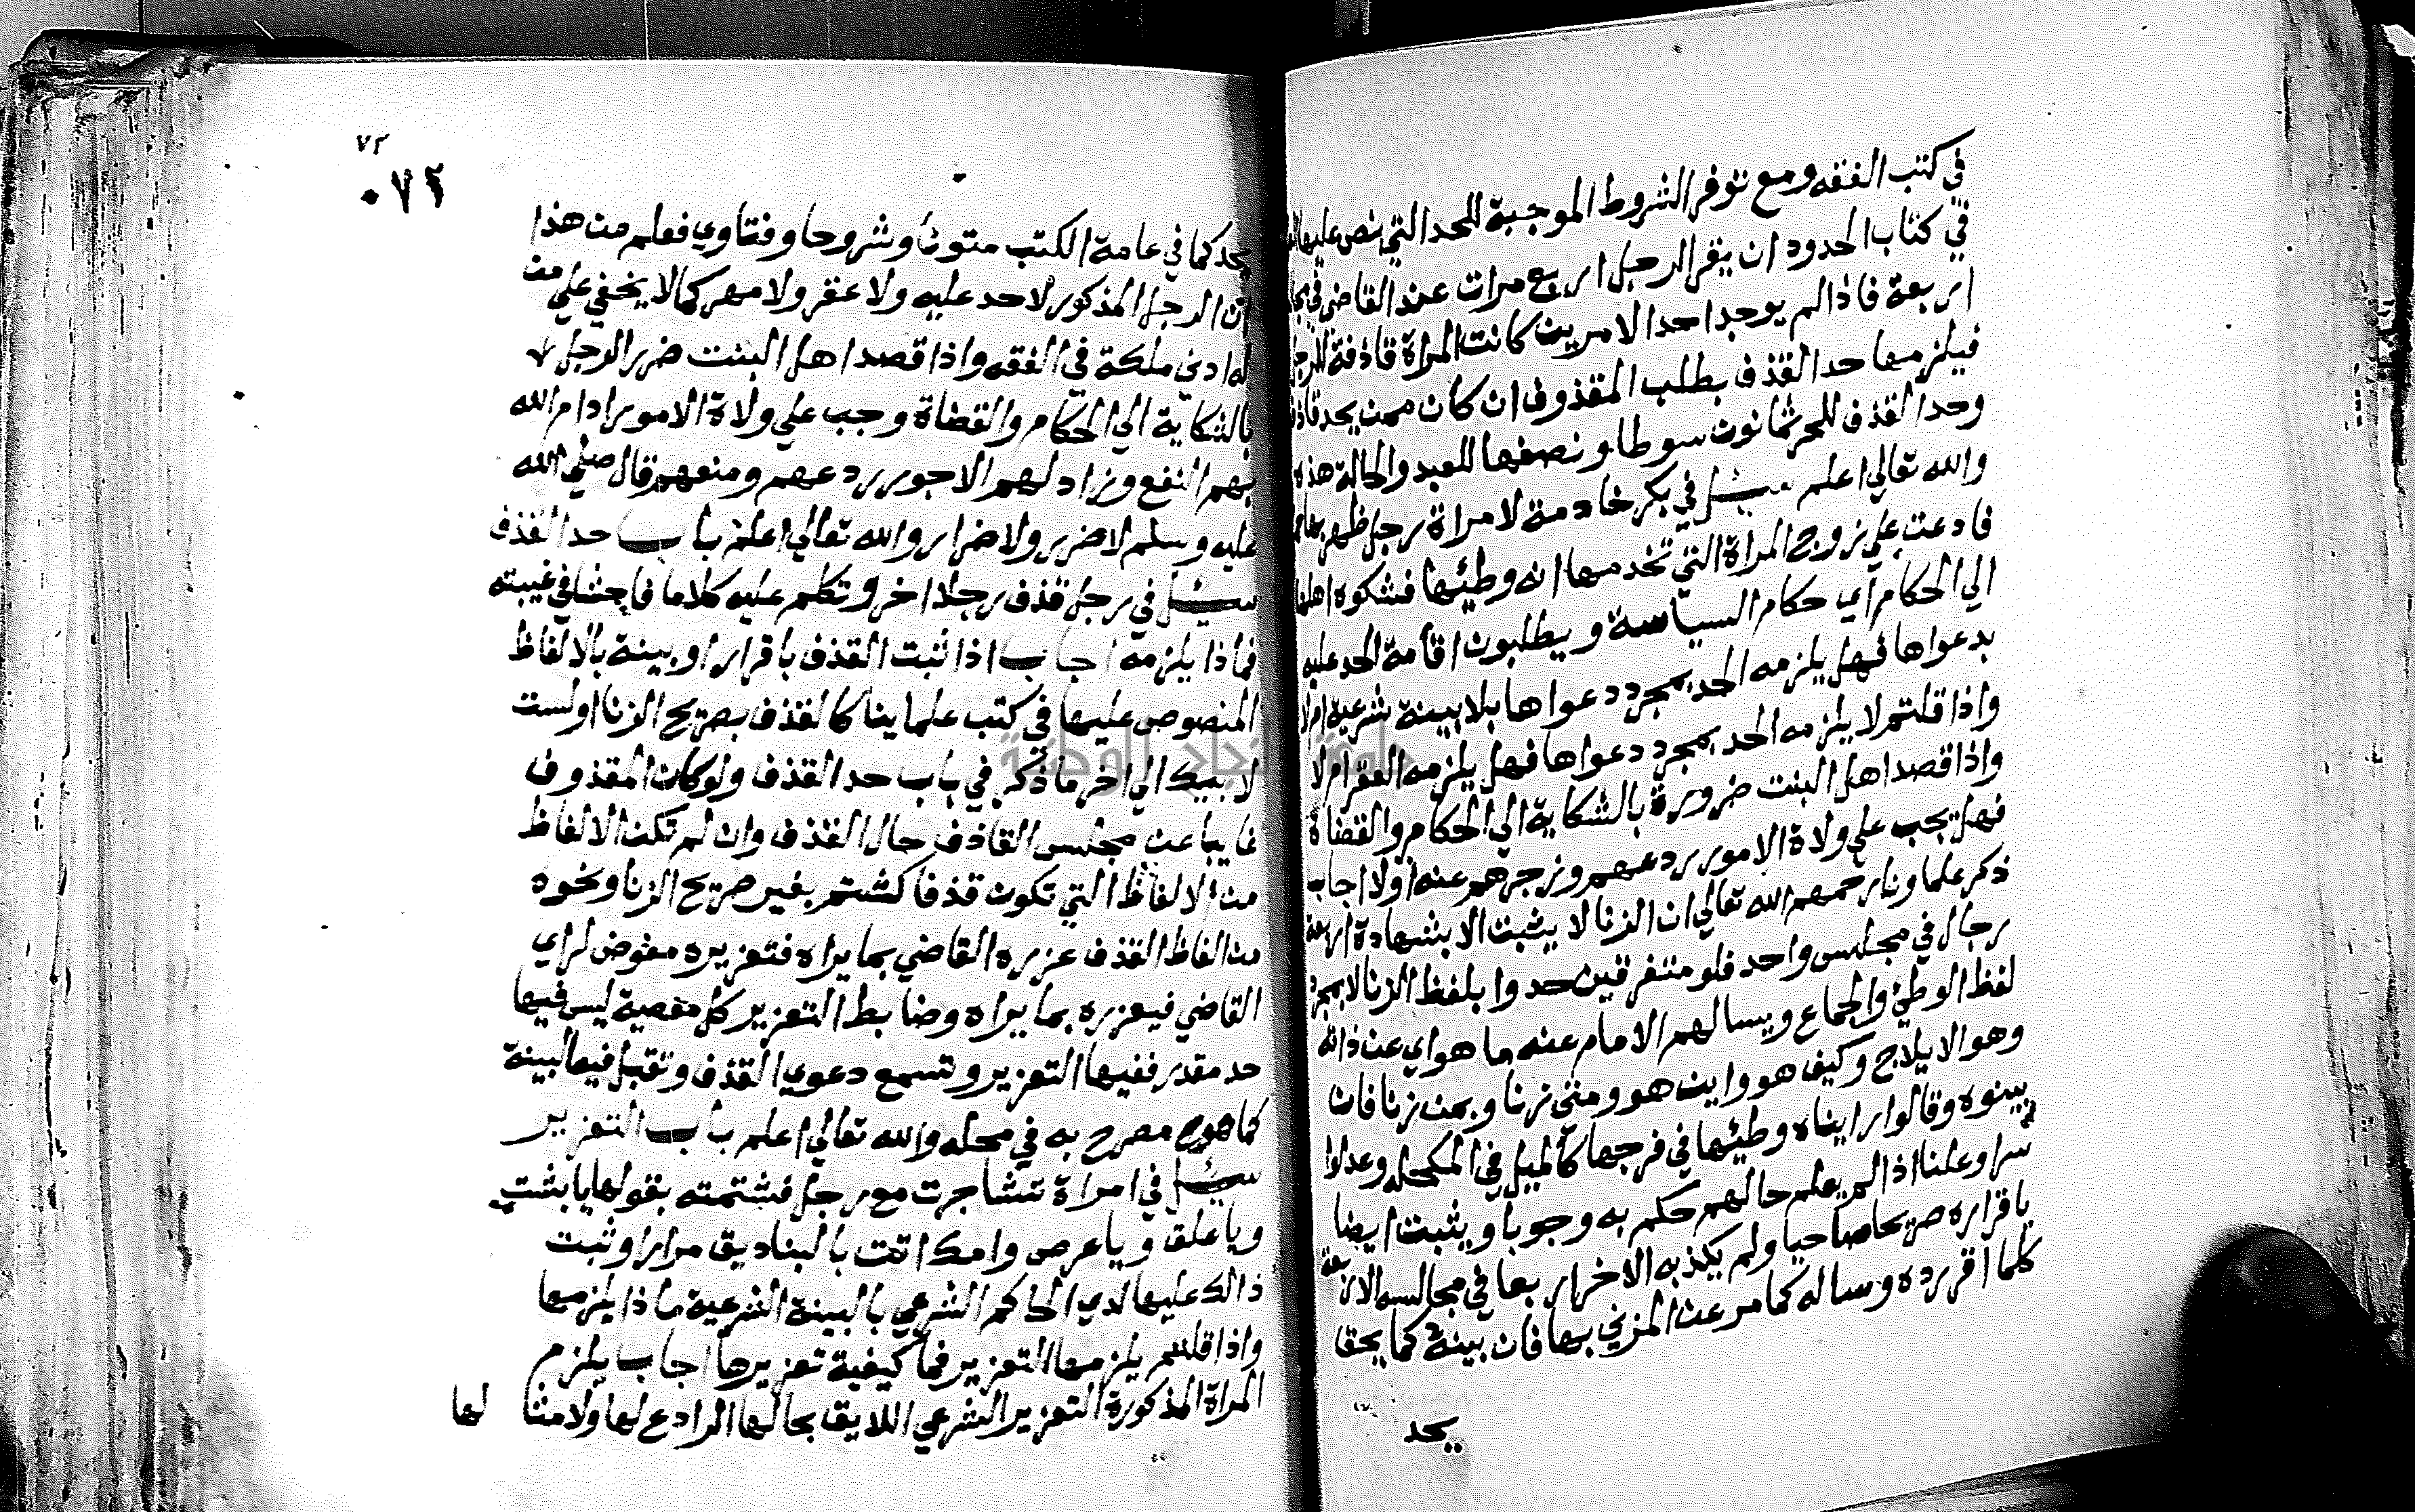 في كتب الفقه ومع توفر الشروط الموجبة للحد التي ينص عليها
في كتاب الحدود ان يقر الرجل اربع مرات عند القاضي في
اربعة فاذا لم يوجد احد الامرين كانت المراة قاذفة للرجل
فيلزمها حد القذف بطلب المقذوف ان كان ممن يحد قاذف
وحد القذف للحر ثمانون سوطا ونصفها للعبد والحالة هذه
والله تعالي اعلم سئل في بكر خادمة لامراة رجل ظهر بها
فادعت علي زوج المراة التي تخدمها انه وطيها فشكوه اهلها
الي الحكام اي حكام السياسة ويطلبون اقامة الحد عليه
بدعواها فهل يلزمه الحد بمجرد دعواها بلا بينة شرعية ام لا
واذا قلتم لا يلزمه الحد بمجرد دعواها فهل يلزمه العقر ام لا
واذا قصد اهل البنت ضروره بالشكاية الي الحكام والقضاة
فهل يجب علي ولاة الامور ردعهم وزجرهم عنه اولا اجاب
ذكر علماونا رحمهم الله تعالي ان الزنا لا يثبت الا بشهادة اربعة
رجال في مجلس واحد فلو متفرقين حدوا بلفظ الزنا لا بمجرد
لفظ الوطئ والجماع ويسالهم الامام عنه ما هو اي عن ذاته
وهو الايلاج وكيف هو واين هو ومتي زنا وبمن زنا فان
بينوه وقالوا رايناه وطيها في فرجها كالميل في المكحله وعدلوا
سرا وعلنا اذا لم يعلم حالهم حكم به وجوبا ويثبت ايضا
باقراره صريحا صاحيا ولم يكذبه الاخر اربعا في مجالسه الاربعة
كلما اقر رده وساله كما مر عن المزني بها فان بينه كما يحق
يحد
٧٢
٠٧٢
يحد كما في عامة الكتب متونا وشروحا وفتاوي فعلم من هذا
ان الرجل المذكور لا حد عليه ولا عقر ولا مهر كما لا يخفي علي من
له ادني ملكة في الفقه واذا قصد اهل البنت ضرر الرجل
بالشكاية الي الحكام والقضاة وجب علي ولاة الامور ادام الله
بهم النفع وزاد لهم الاجور ردعهم ومنعهم قال صلي الله
عليه وسلم لا ضرر ولا ضرار والله تعالي اعلم باب حد القذف
سئل في رجل قذف رجلا اخر وتكلم عليه كلاما فاحشا في غيبته
فماذا يلزمه اجاب اذا ثبت القذف باقرار او بينة بالالفاظ
المنصوص عليها في كتب علماينا كالقذف بصريح الزنا او لست
لابيك الي اخر ما ذكر في باب حد القذف ولو كان المقذوف
غايبا عن مجلس القاذف حال القذف وان لم تكن الالفاظ
من الالفاظ التي تكون قذفا كشتم بغير صريح الزنا ونحوه
من الفاظ القذف عزره القاضي بما يراه فتعزيره مفوض لراي
القاضي فيعزره بما يراه وضابط التعزير كل معصية ليس فيها
حد مقدر ففيها التعزير وتسمع دعوي القذف وتقبل فيها البينة
كما هو مصرح به في محله والله تعالي اعلم باب التعزير
سئل في امراة تشاجرت مع رجل فشتمته بقولها يا بشت
ويا علق ويا عرص وامك اتت بالبناديق مرارا وثبت
ذالك عليها لدي الحاكم الشرعي بالبينة الشرعية ماذا يلزمها
واذا قلتم يلزمها التعزير فما كيفية تعزيرها اجاب يلزم
المراة المذكورة التعزير الشرعي اللايق بحالها الرادع لها ولامثا
لها